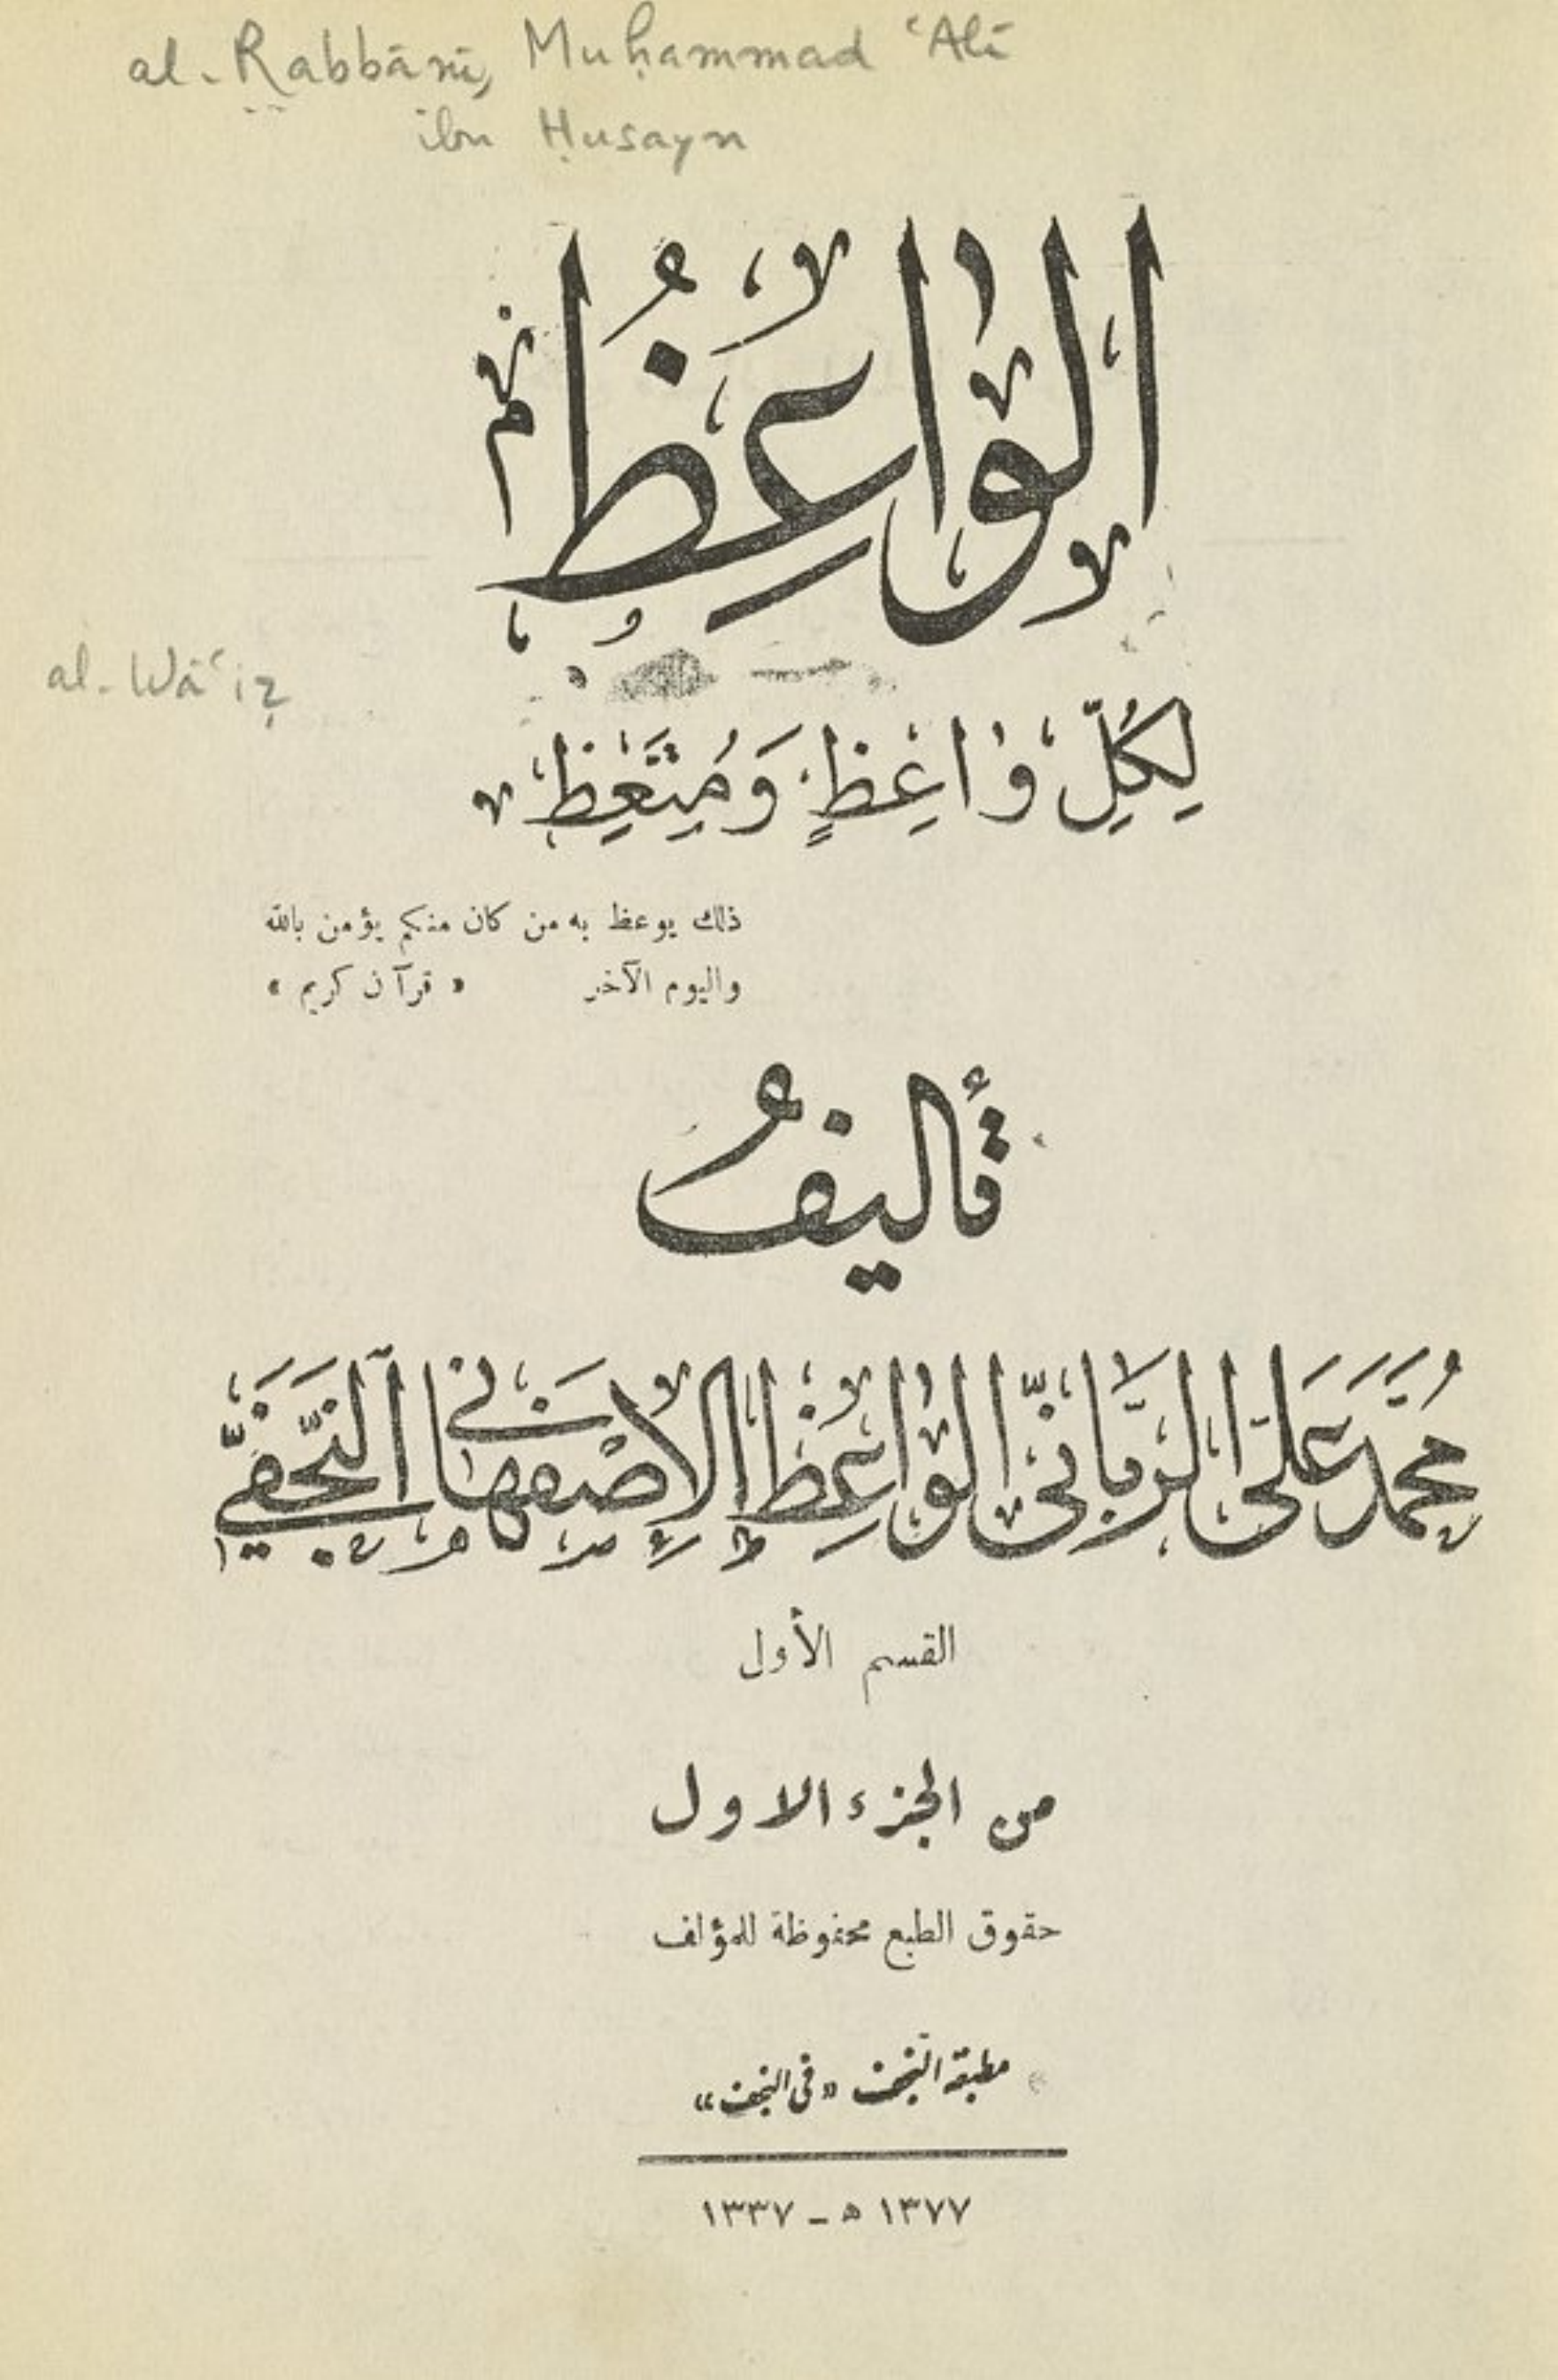 al-Rabbānī, Muḥammad ʿAlī
ibn Ḥusayn
الواعِظُ
al-Wāʿiẓ
لِكُلِّ وٰاعِظٍ وَمُتَّعِظٍ
ذلك يوعظ به من كان منكم يؤمن بالله
واليوم الآخر « قرآن كريم »
تأليفُ
مُحَمَّد عَلىّ الرَّبّانىّ الوٰاعِظ الإصْفهانى النَّجَفىّ
القسم الأول
من الجزء الاول
حقوق الطبع محفوظة للمؤلف
مطبعة النجف «فى النجف»
١٣٧٧ ه - ١٣٣٧